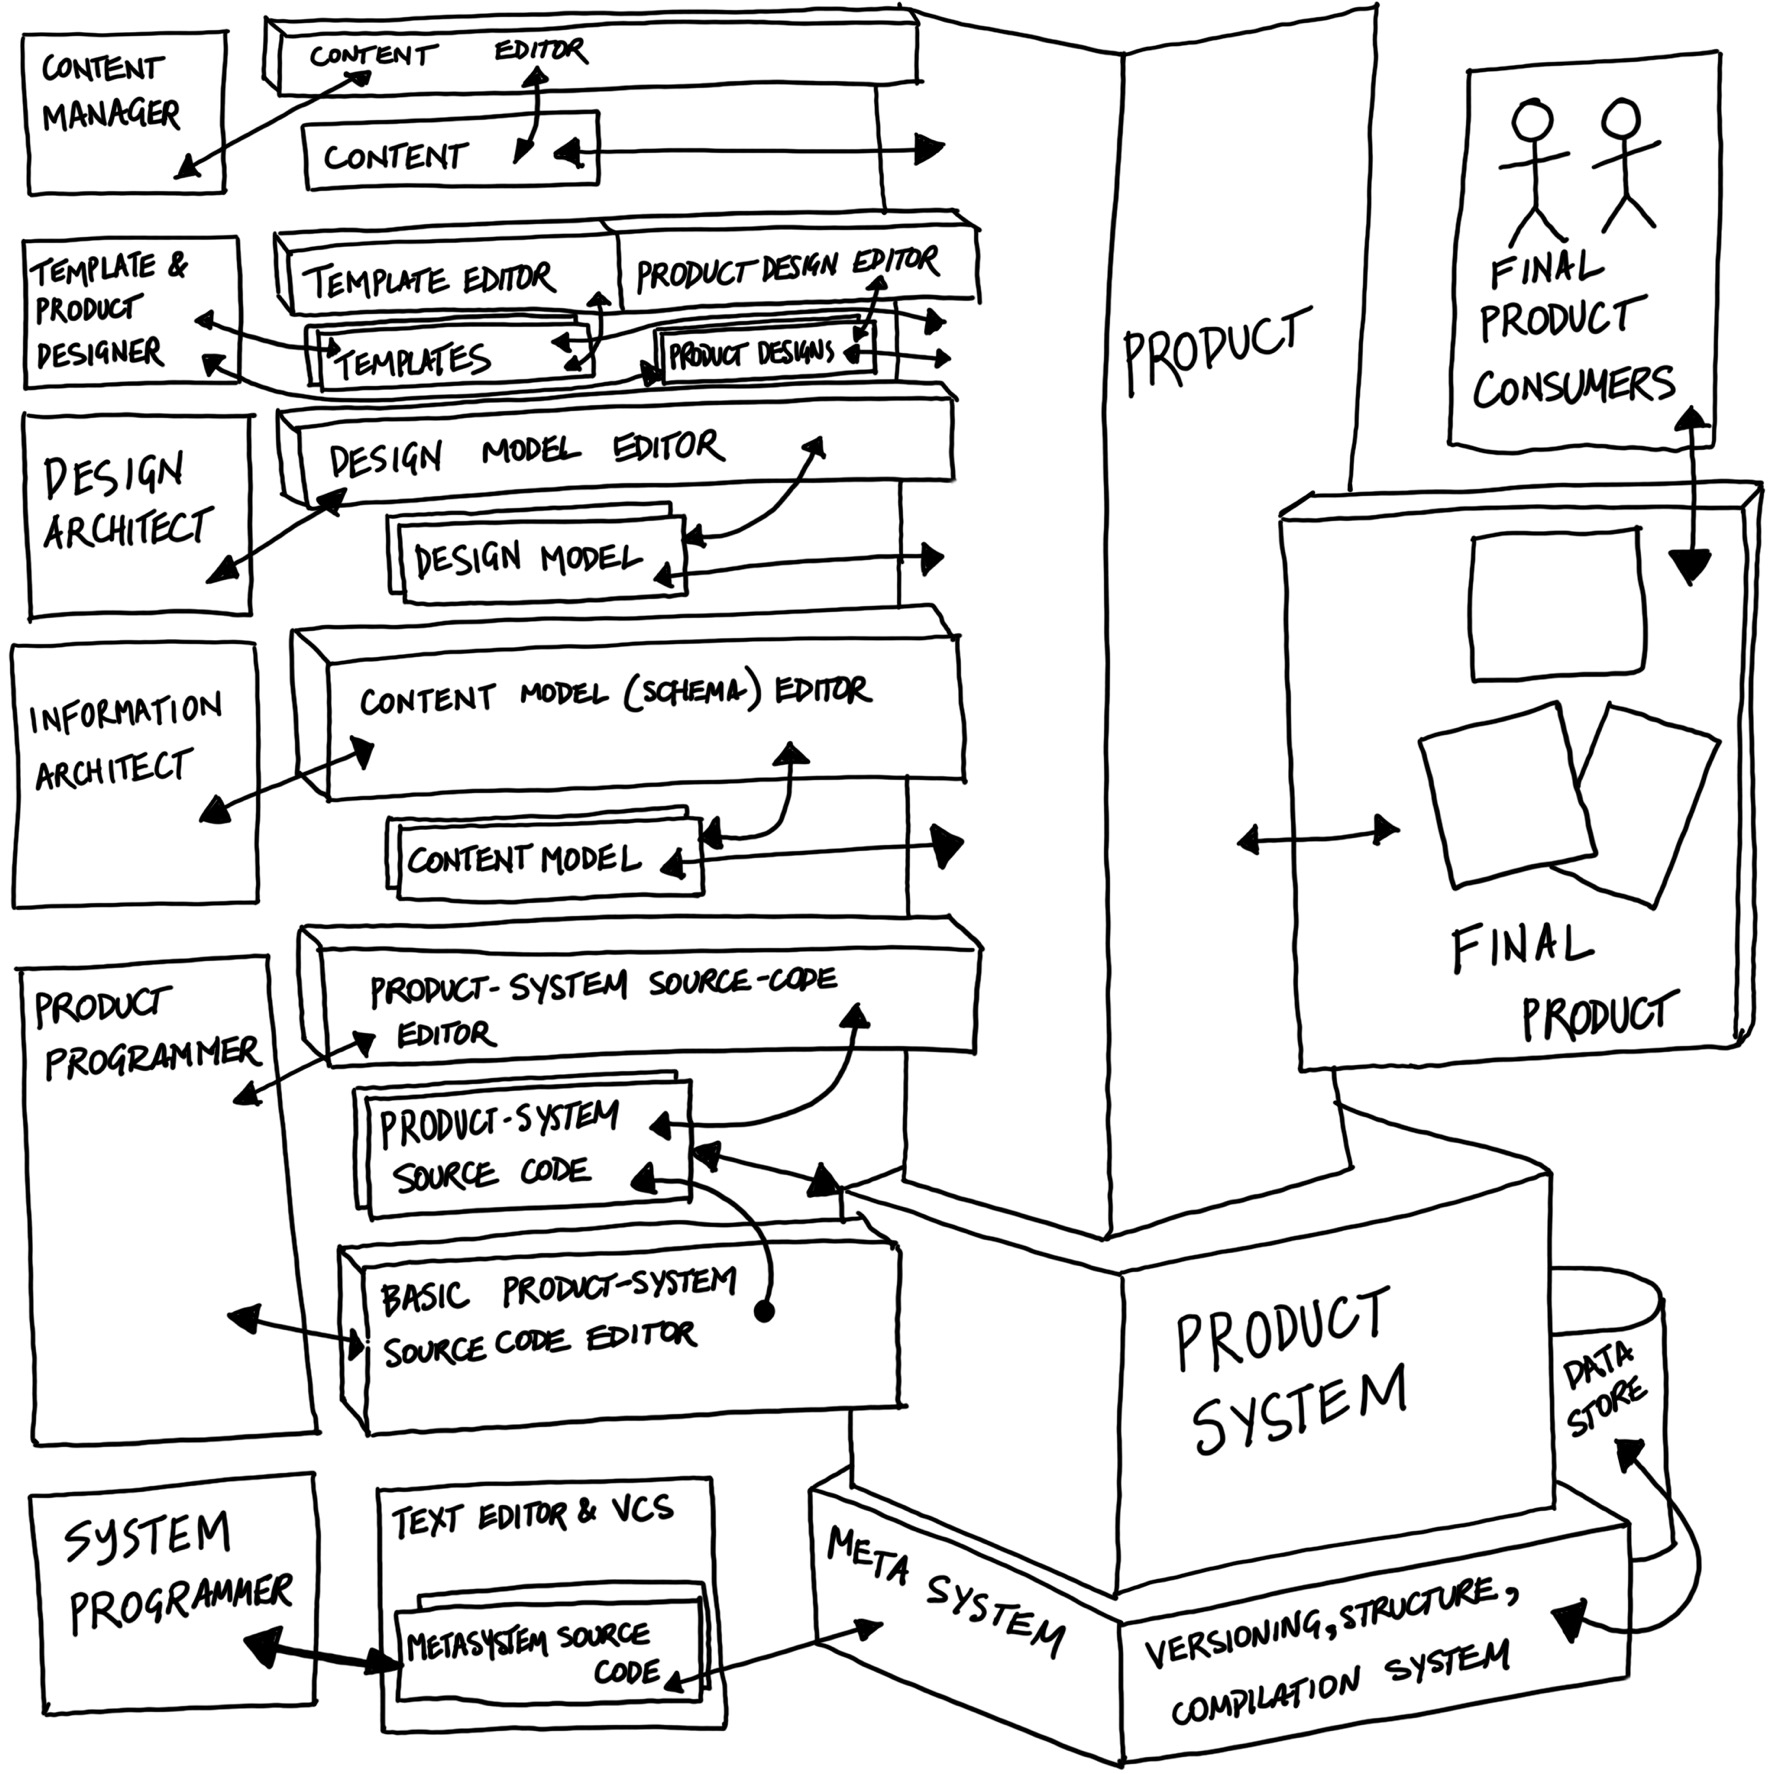 CONTENT
MANAGER
CONTENT EDITOR
CONTENT
TEMPLATE &
PRODUCT
DESIGNER
TEMPLATE EDITOR
PRODUCT DESIGN EDITOR
TEMPLATES
PRODUCT DESIGNS
DESIGN
ARCHITECT
DESIGN MODEL EDITOR
DESIGN MODEL
INFORMATION
ARCHITECT
CONTENT MODEL (SCHEMA) EDITOR
CONTENT MODEL
PRODUCT
PROGRAMMER
PRODUCT-SYSTEM SOURCE-CODE
EDITOR
PRODUCT-SYSTEM
SOURCE CODE
BASIC PRODUCT-SYSTEM
SOURCE CODE EDITOR
SYSTEM
PROGRAMMER
TEXT EDITOR & VCS
METASYSTEM SOURCE
CODE
PRODUCT
FINAL
PRODUCT
CONSUMERS
FINAL
PRODUCT
PRODUCT
SYSTEM
DATA
STORE
META SYSTEM
VERSIONING, STRUCTURE,
COMPILATION SYSTEM